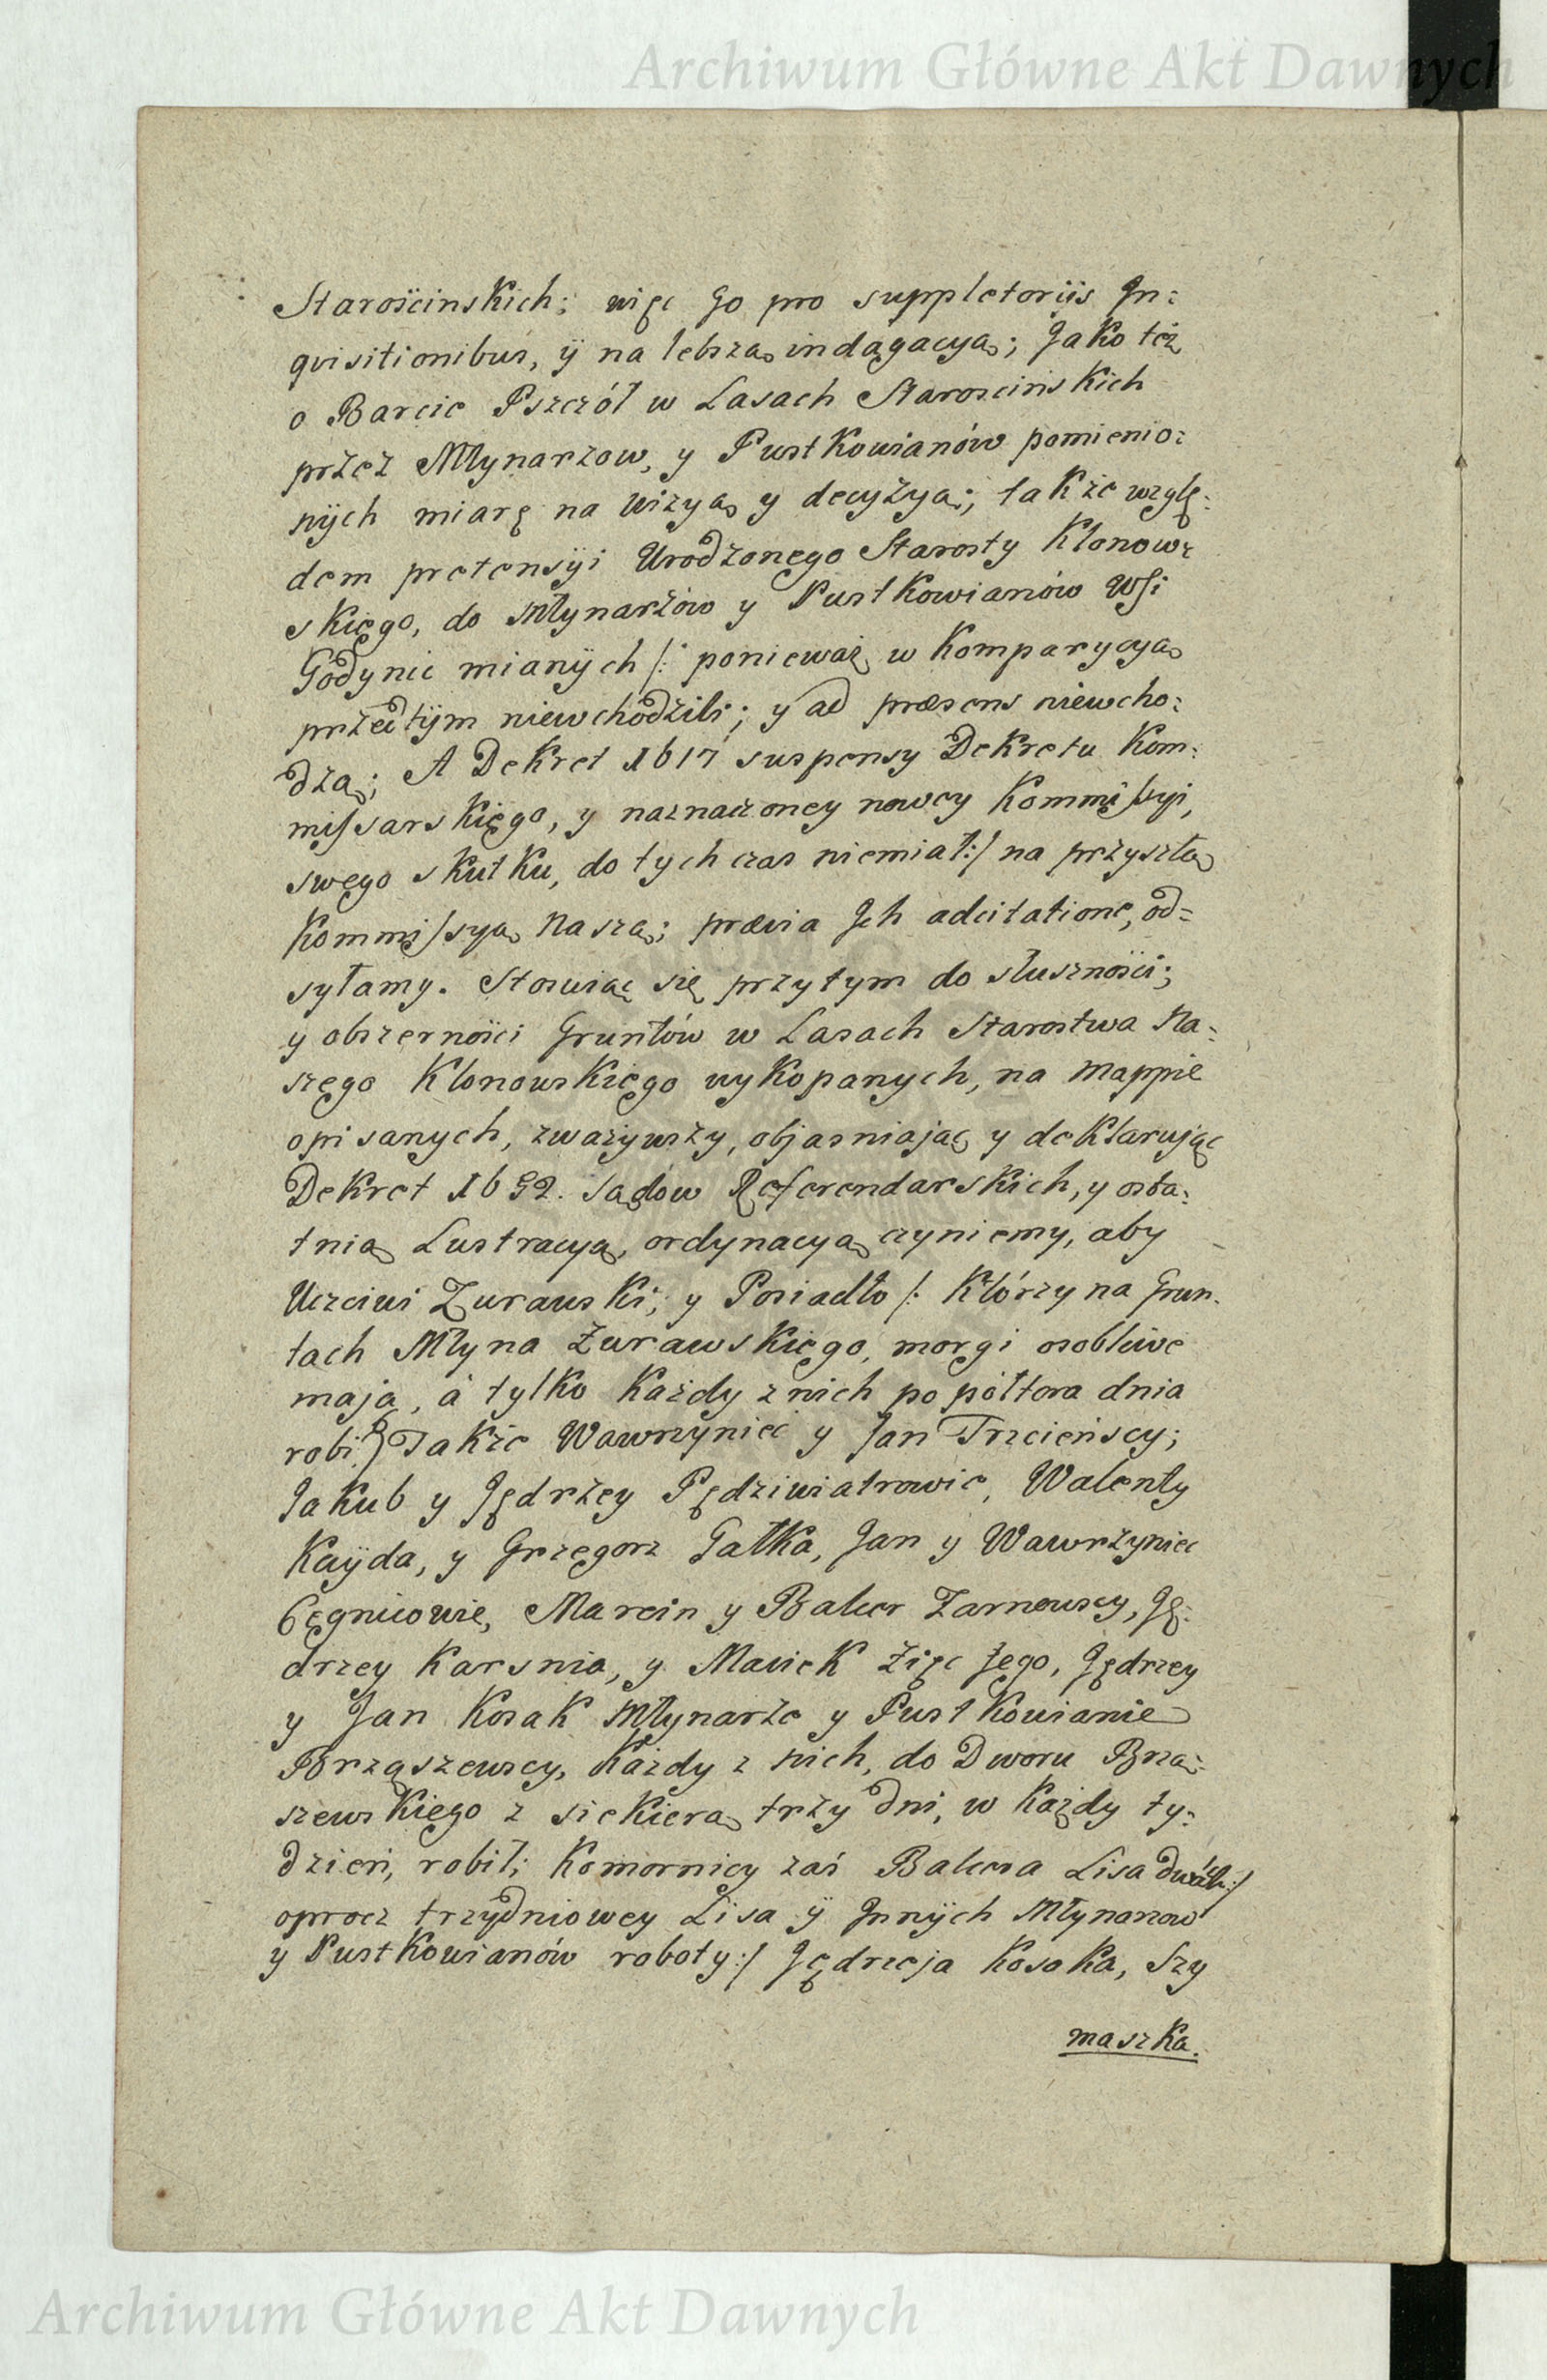 Archiwum Główne Akt Dawnych
Starościnskich; więc Go pro suppletoriis In:
qvisitionibus, ÿ na lebszą indagacyą; Jako też
o Barcie Pszczół w Lasach Starościńskich
przez Młynarzow, y Pustkowianów pomienio:
nÿch miarę na wizyą y decyzyą; także wzglę:
dem pretensÿi Urodzonego Starosty Klonow:
skięgo, do Młynarzów y Pustkowianów Wsi
Godynic mianÿch /: ponieważ w Komparycyą
przedtÿm niewchodzili; y ad præsens niewcho:
dzą; A Dekret 1617 suspensy Dekretu Kom:
missarskięgo, y naznaczoney nowey Kommissyi,
swego skutku, do tych czas niemiał:/ na przyszłą
Kommissyą Naszą; prævia Jch adcitatione, od=
syłamy. Stosuiąc się przytym do słuszności;
y obszerności Gruntów w Lasach Starostwa Na:
szego Klonowskięgo wykopanych, na Mappie
opisanych, zważywszy, objasniając y deklarując
Dekret 1692. Sądow Referendarskich, y osta:
tnią Lustracyą, ordynacyą czyniemy, aby
Uczciwi Zurawski; y Posiadło /: Którzy na Grun:
tach Młyna Zurawskięgo, morgi osobliwe
mają, à tylko Każdy z nich po półtora dnia
robi:/ Takze Wawrzyniec y Jan Trzcieńscy;
Jakub y Jędrzey Pędziwiatrowie, Walenty
Kaÿda, y Grzegorz Gałka, Jan y Wawrzyniec
Cęgnicowie, Marcin y Balcer Zarnowscy, Ję:
drzey Karsnia, y Maciek zięc Jego, Jędrzey
y Jan Kosak Młynarze y Pustkowianie
Brząszewscy, Każdy z nich, do Dworu Brzą:
szewskiego z siekierą trzy dni, w Każdy ty:
dzień, robił; Komornicy zaś Balcera Lisa dwóch:/
oprocz trzydniowey Lisa ÿ Jnnÿch Młynarzow
y Pustkowianów roboty:/ Jędrzeja Kosaka, Szy
maszka.
Archiwum Główne Akt Dawnych